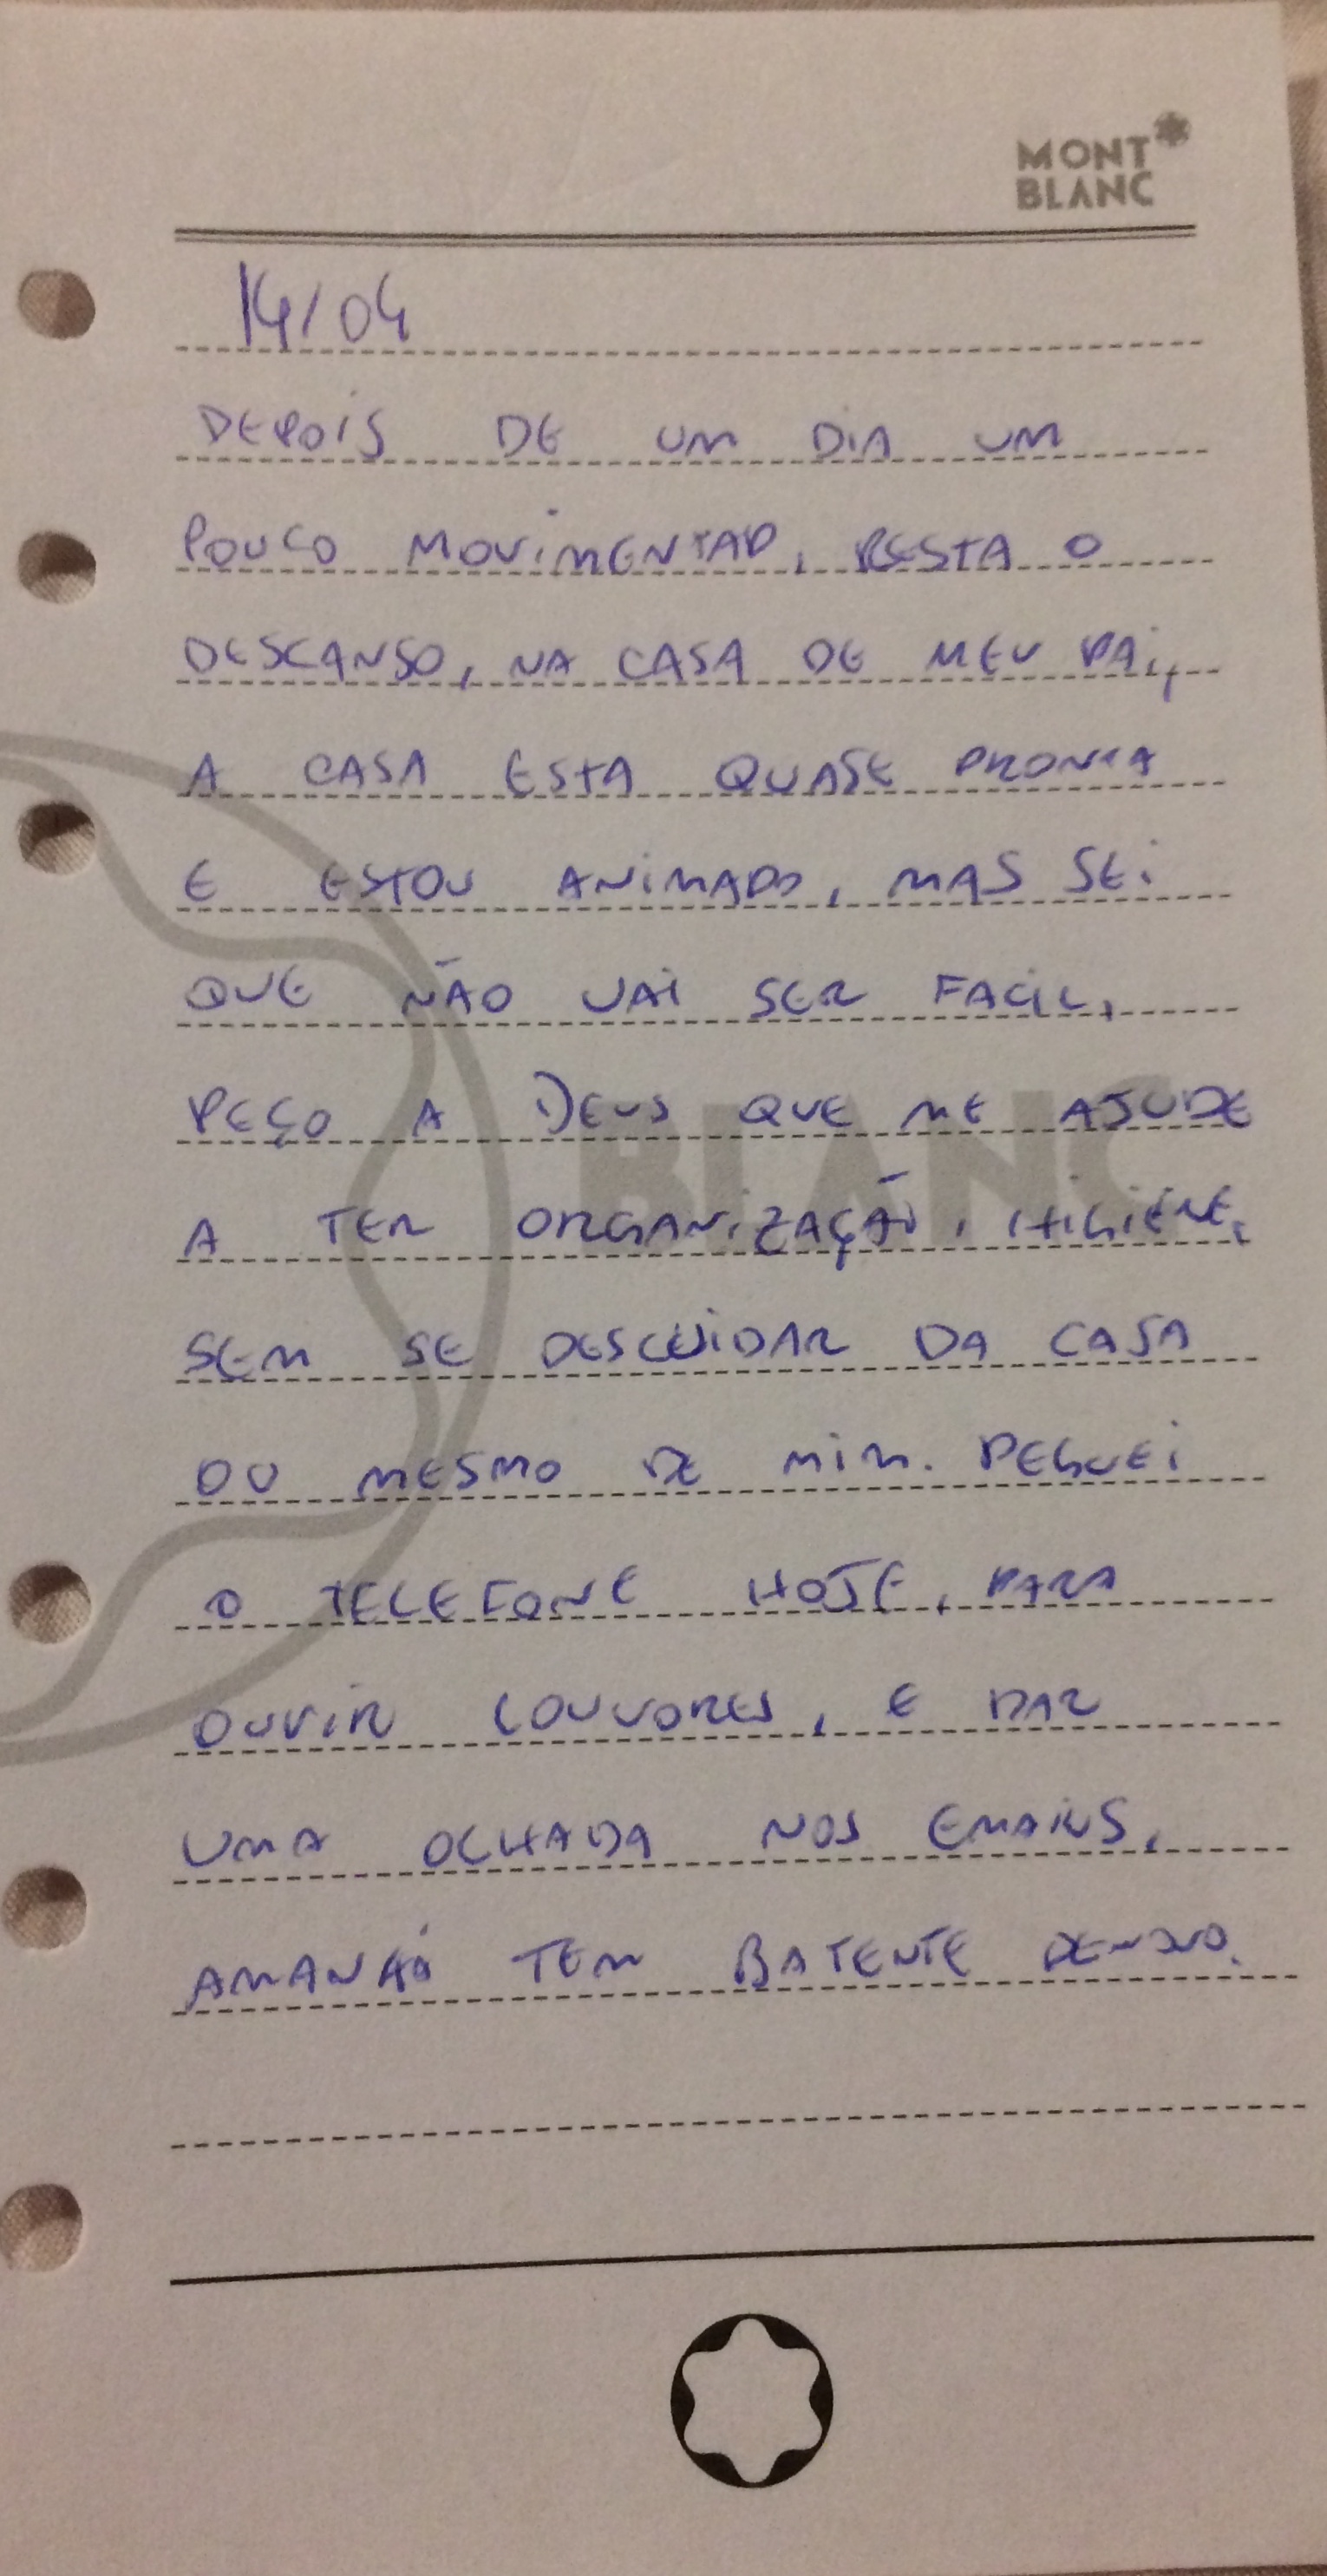 MONT
BLANC
14/04
DEPOIS DE UM DIA UM
POUCO MOVIMENTAD, RESTA O
DESCANSO, NA CASA DE MEU PAI,
A CASA ESTA QUASE PRONTA
E ESTOU ANIMADO, MAS SEI
QUE NÃO VAI SER FACIL,
PEÇO A DEUS QUE ME AJUDE
A TER ORGANIZAÇÃO, HIGIENE,
SEM SE DESCUIDAR DA CASA
OU MESMO DE MIM. PEGUEI
O TELEFONE HOJE, PARA
OUVIR LOUVORES, E DAR
UMA OLHADA NOS EMAILS,
TEM BATENTE DENOVO.
BLANC